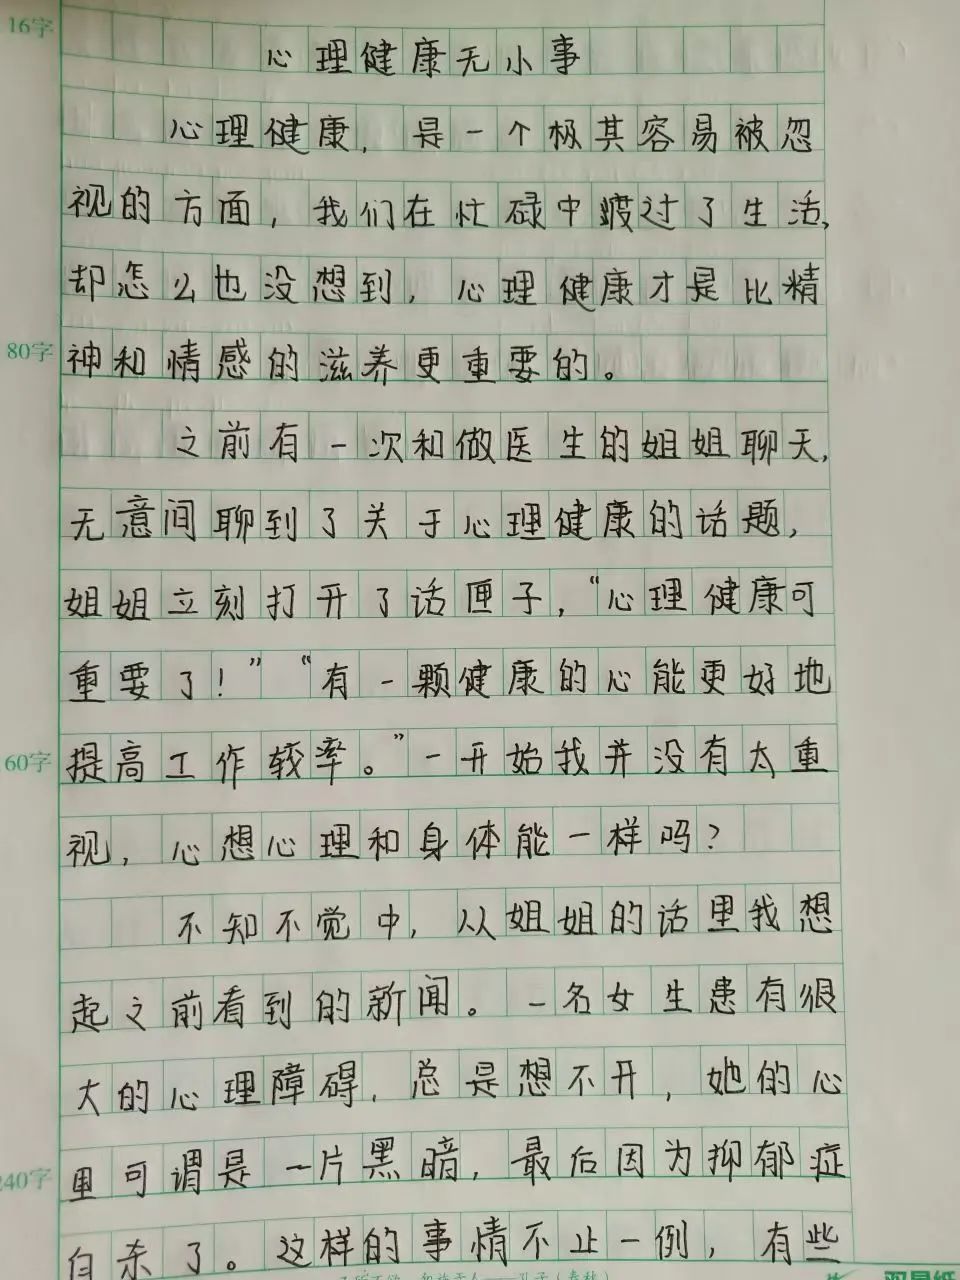 16字
心理健康无小事
心理健康，是一个极其容易被忽
视的方面，我们在忙碌中渡过了生活，
却怎么也没想到，心理健康才是比精
80字
神和情感的滋养更重要的。
之前有一次和做医生的姐姐聊天，
无意间聊到了关于心理健康的话题，
姐姐立刻打开了话匣子，“心理健康可
重要了！”“有一颗健康的心能更好地
60字
提高工作较率。”一开始我并没有太重
视，心想心理和身体能一样吗？
不知不觉中，从姐姐的话里我想
起之前看到的新闻。一名女生患有很
大的心理障碍，总是想不开，她的心
240字
里可谓是一片黑暗，最后因为抑郁症
自杀了。这样的事情不止一例，有些